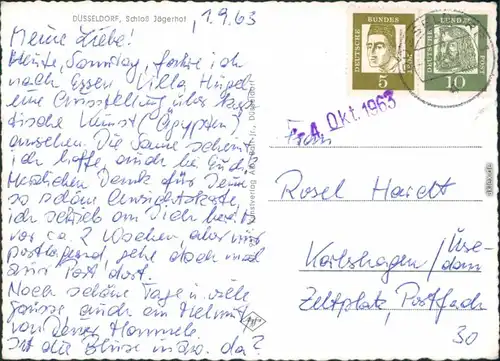 DÜSSELDORF, Schloß Jägerhof
1.9.63
Meine Liebe!
Heute, Sonntag, fahre ich
nach Essen Villa Hügel
eine Ausstellung über kop
tische Kunst (Ägypten)
ansehen. Die Sonne scheint
ich hoffe, auch bei Euch.
Herzlichen Dank für Deine
so schöne Ansichtskarte,
ich schrieb an Dich bereits
vor ca 2 Wochen aber nur
postlagernd, sehe doch mal
zur Post dort.
Noch schöne Tage u. viele
Grüsse auch an Helmut
von Deiner
Ist die Bluse in da?
DEUTSCHE BUNDESPOST
5
DEUTSCHE BUNDESPOST
10
4. Okt. 1963
Frau
Rosel Hardt
Karlshagen / Use-
dom
Zeltplatz, Postfach
30